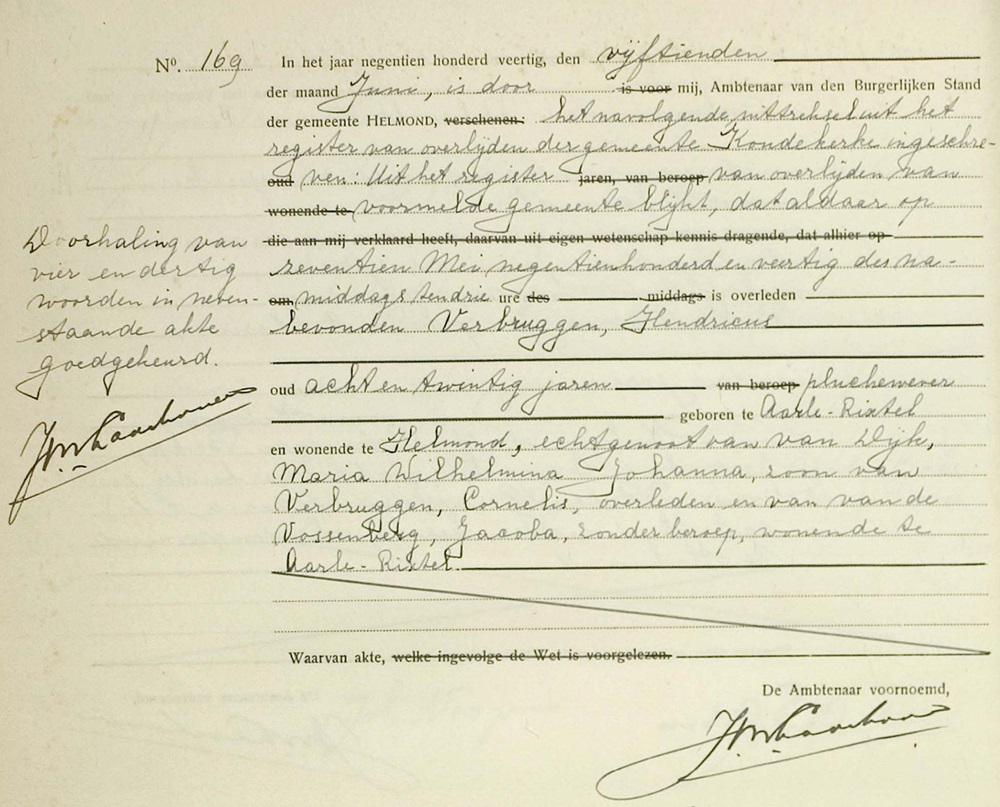 Nº. 169 In het jaar negentien honderd veertig, den vijftienden
der maand Juni, is door is voor mij, Ambtenaar van den Burgerlijken Stand
der gemeente HELMOND, verschenen: het navolgende uittreksel uit het
register van overlijden der gemeente Koudekerke ingeschre-
oud ven: Uit het register jaren, van beroep van overlijden van
wonende te voormelde gemeente blijkt, dat aldaar op
die aan mij verklaard heeft, daarvan uit eigen wetenschap kennis dragende, dat alhier op
zeventien Mei negentienhonderd en veertig des na-
om middags ten drie ure des middags is overleden
bevonden Verbruggen, Hendricus
oud acht en twintig jaren van beroep pluchewever
geboren te Aarle-Rixtel
en wonende te Helmond, echtgenoot van van Dijk,
Maria Wilhelmina Johanna, zoon van
Verbruggen, Cornelis, overleden en van van de
Vossenberg, Jacoba, zonder beroep, wonende te
Aarle-Rixtel.
Waarvan akte, welke ingevolge de Wet is voorgelezen.
De Ambtenaar voornoemd,
Doorhaling van
vier en dertig
woorden in neven-
staande akte
goedgekeurd.